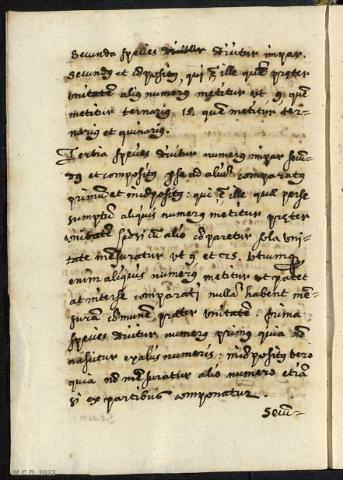 secunda species dicitur impar.
secundus et cõpositus, qui ẽ ille quẽ pręter
unitatem aliq numerus metitur ut 9. quẽ
metitur ternarius, 15. quem metitur ter-
narius et quinarius.
Tertia species dicitur numerus impar secũ-
dus et compositus per se ad aliũ comparatus
primus et incõpositus: qui ẽ ille quẽ per se
sumptum aliquis numerus metitur pręter
unitatẽ sed si cũ alio cõparetur sola uni-
tate mẽsuratur ut 9. et 25. utrumq
enim aliquis numerus metitur ut patet
at inter se comparati nullã habent mẽ-
suram cõmunẽ pręter unitatẽ. prima
species dicitur numerus primus quia nõ
nascitur ex aliis numeris: incõpositus vero
quia nõ mẽsuratur alio numero etiã
si ex partibus componatur.
secũ-
M.C.D. 2022